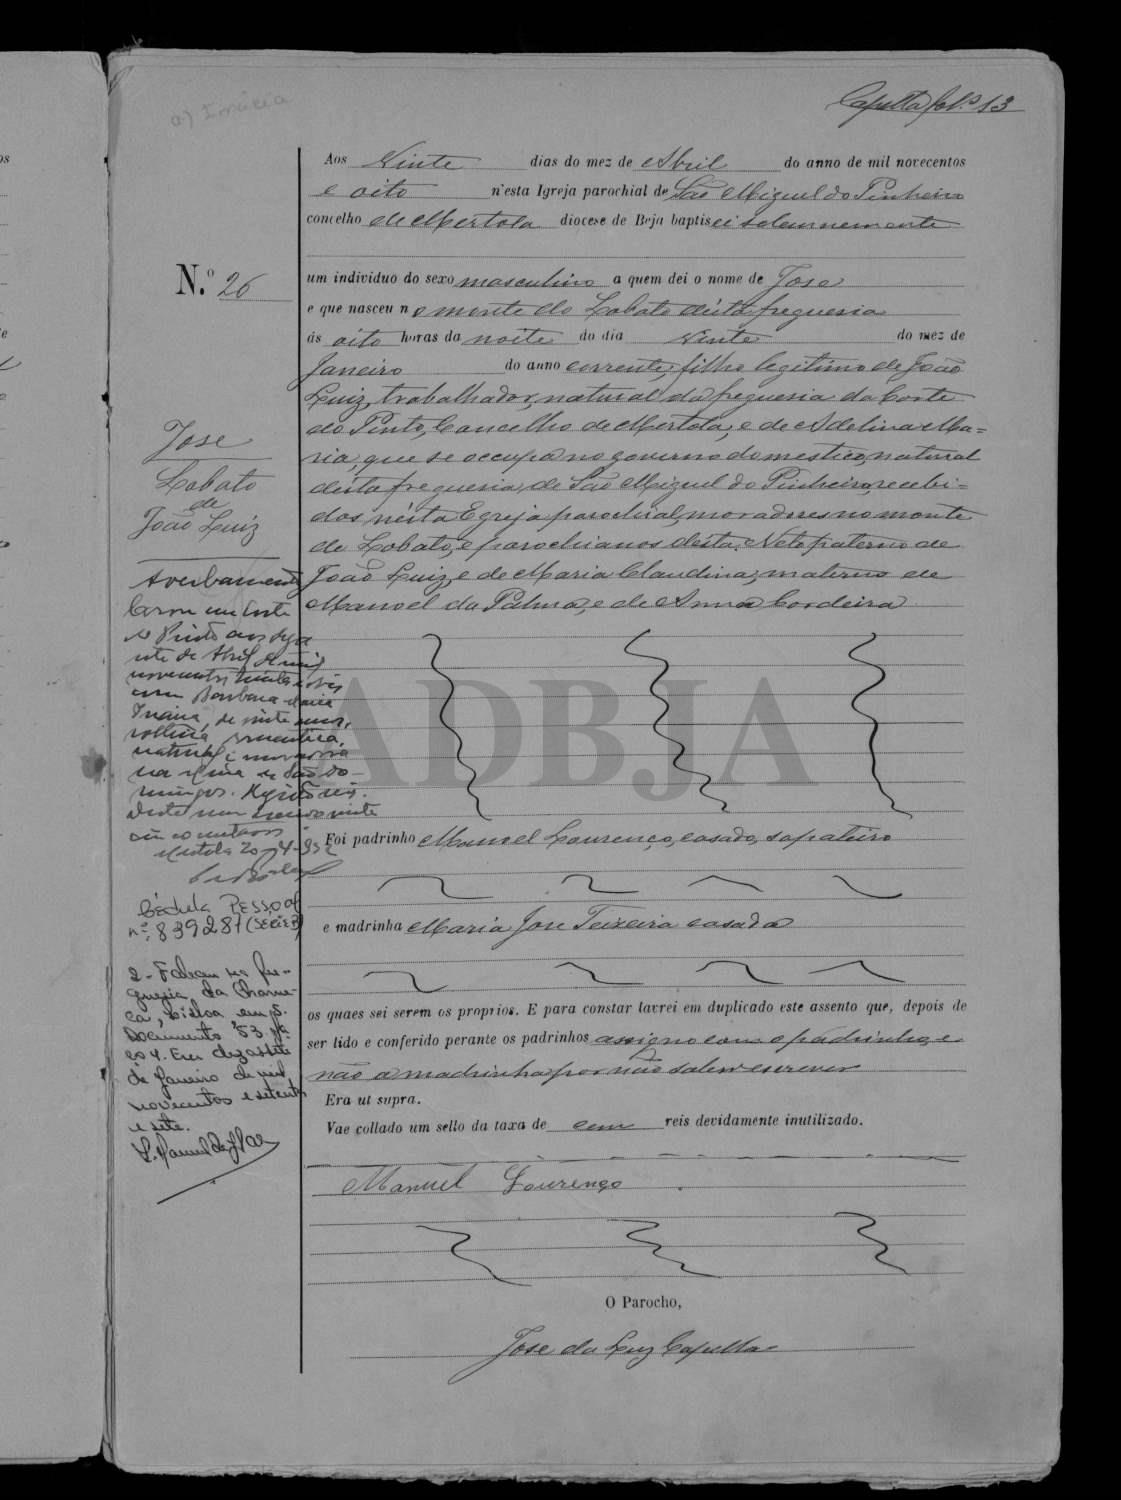 a) Inácia
Capella fol.º 13
Aos Vinte dias do mez de Abril do anno de mil novecentos
e oito n'esta Igreja parochial de São Miguel do Pinheiro
concelho de Mertola diocese de Beja baptisei solemnemente
N.º 26
um individuo do sexo masculino a quem dei o nome de Jose
e que nasceu no monte do Lobato désta freguesia
ás oito horas da noite do dia vinte do mez de
Janeiro do anno corrente, filho legitimo de João
Luiz, trabalhador, natural da freguesia da Corte
do Pinto, Concelho de Mertola, e de Adelina Ma=
ria, que se occupa no governo domestico, natural
désta freguesia de São Miguel do Pinheiro, recebi=
dos nésta Egreja parochial, moradores no monte
de Lobato, e parochianos desta. Neto paterno de
João Luiz, e de Maria Claudina; materno de
Manoel da Palma, e de Anna Cordeira
Jose
Lobato
de
João Luiz
Averbamento
Casou em Corte
do Pinto aos
de Abril de mil
novecentos trinta e dois
com Barbara Maria
Inacia, de vinte anos,
solteira, domestica,
natural e moradora
na Mina de São Do-
mingos. Registo
Mertola 20-4-932
Cédula Pessoal
n.º 839287 (Série B)
2- Faleceu na fre-
guesia da Charne-
ca, Lisboa em 5.
Documento 53
Em dezassete
de Janeiro de mil
novecentos e setenta
e sete.
ADBJA
Foi padrinho Manoel Lourenço, casado, sapateiro
e madrinha Maria Jose Teixeira casada
os quaes sei serem os proprios. E para constar lavrei em duplicado este assento que, depois de
ser lido e conferido perante os padrinhos assigno com o padrinho, e
não a madrinha por não saber escrever
Era ut supra.
Vae collado um sello da taxa de cem reis devidamente inutilizado.
Manuel Lourenço
O Parocho,
Jose da Luz Capella